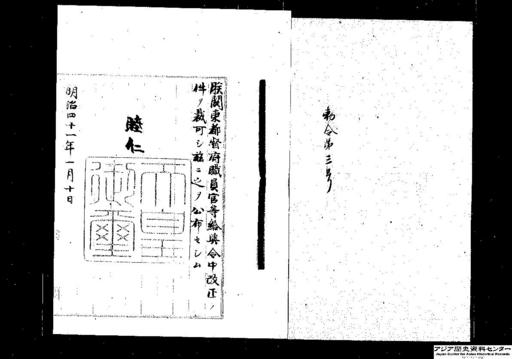 勅令第三号
朕関東都督府職員官等給与令中改正ノ
件ヲ裁可シ茲ニ之ヲ公布セシム
睦仁
天皇
御璽
明治四十一年一月十日
アジア歴史資料センター
Japan Center for Asian Historical Records